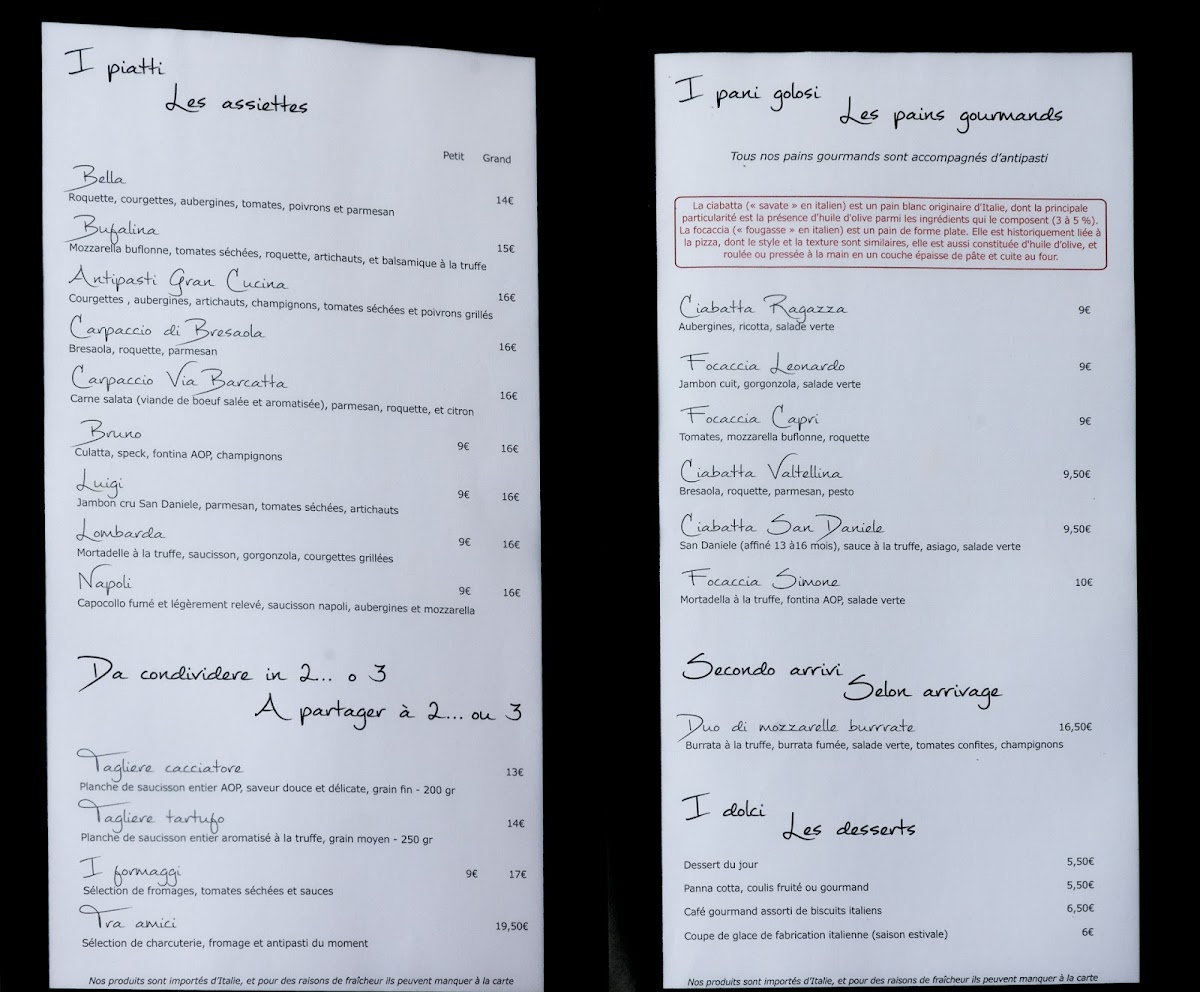 I piatti
Les assiettes
Petit Grand
Bella
Roquette, courgettes, aubergines, tomates, poivrons et parmesan 14€
Bufalina
Mozzarella buflonne, tomates séchées, roquette, artichauts, et balsamique à la truffe 15€
Antipasti Gran Cucina
Courgettes , aubergines, artichauts, champignons, tomates séchées et poivrons grillés 16€
Carpaccio di Bresaola
Bresaola, roquette, parmesan 16€
Carpaccio Via Barcatta
Carne salata (viande de boeuf salée et aromatisée), parmesan, roquette, et citron 16€
Bruno 9€ 16€
Culatta, speck, fontina AOP, champignons
Luigi 9€ 16€
Jambon cru San Daniele, parmesan, tomates séchées, artichauts
Lombarda 9€ 16€
Mortadelle à la truffe, saucisson, gorgonzola, courgettes grillées
Napoli 9€ 16€
Capocollo fumé et légèrement relevé, saucisson napoli, aubergines et mozzarella
Da condividere in 2... o 3
A partager à 2... ou 3
Tagliere cacciatore 13€
Planche de saucisson entier AOP, saveur douce et délicate, grain fin - 200 gr
Tagliere tartufo 14€
Planche de saucisson entier aromatisé à la truffe, grain moyen - 250 gr
I formaggi 9€ 17€
Sélection de fromages, tomates séchées et sauces
Tra amici 19,50€
Sélection de charcuterie, fromage et antipasti du moment
Nos produits sont importés d'Italie, et pour des raisons de fraîcheur ils peuvent manquer à la carte
I pani golosi
Les pains gourmands
Tous nos pains gourmands sont accompagnés d'antipasti
La ciabatta (« savate » en italien) est un pain blanc originaire d'Italie, dont la principale
particularité est la présence d'huile d'olive parmi les ingrédients qui le composent (3 à 5 %).
La focaccia (« fougasse » en italien) est un pain de forme plate. Elle est historiquement liée à
la pizza, dont le style et la texture sont similaires, elle est aussi constituée d'huile d'olive, et
roulée ou pressée à la main en un couche épaisse de pâte et cuite au four.
Ciabatta Ragazza 9€
Aubergines, ricotta, salade verte
Focaccia Leonardo 9€
Jambon cuit, gorgonzola, salade verte
Focaccia Capri 9€
Tomates, mozzarella buflonne, roquette
Ciabatta Valtellina 9,50€
Bresaola, roquette, parmesan, pesto
Ciabatta San Daniele 9,50€
San Daniele (affiné 13 à16 mois), sauce à la truffe, asiago, salade verte
Focaccia Simone 10€
Mortadella à la truffe, fontina AOP, salade verte
Secondo arrivi
Selon arrivage
Duo di mozzarelle burrrate 16,50€
Burrata à la truffe, burrata fumée, salade verte, tomates confites, champignons
I dolci
Les desserts
Dessert du jour 5,50€
Panna cotta, coulis fruité ou gourmand 5,50€
Café gourmand assorti de biscuits italiens 6,50€
Coupe de glace de fabrication italienne (saison estivale) 6€
Nos produits sont importés d'Italie, et pour des raisons de fraîcheur ils peuvent manquer à la carte